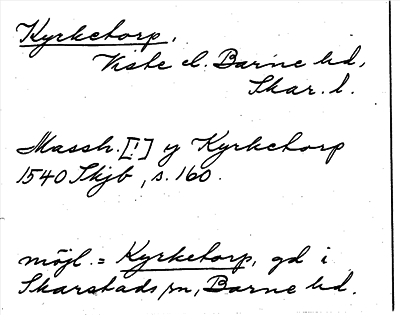 Kyrketorp.
Viste el. Barne hd,
Skar. l.
Massh. [!] y Kyrkethorp
1540 Skjb, s. 160.
möjl. = Kyrketorp, gd i
Skarstads sn, Barne hd.